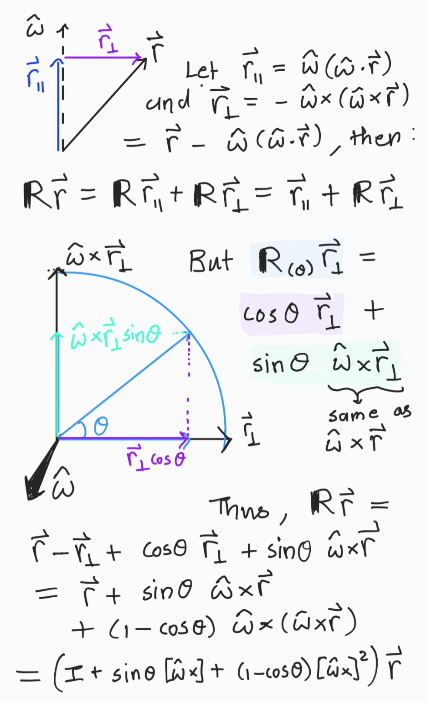 ω̂ r⃗⊥ r⃗
r⃗∥
Let r⃗∥ = ω̂(ω̂·r⃗)
and r⃗⊥ = - ω̂×(ω̂×r⃗)
= r⃗ - ω̂(ω̂·r⃗), then:
R r⃗ = R r⃗∥ + R r⃗⊥ = r⃗∥ + R r⃗⊥
ω̂×r⃗⊥
But R(θ) r⃗⊥ =
cosθ r⃗⊥ +
sinθ ω̂×r⃗⊥
same as
ω̂×r⃗
ω̂×r⃗⊥sinθ
θ
r⃗⊥
r⃗⊥cosθ
ω̂
Thus, R r⃗ =
r⃗-r⃗⊥ + cosθ r⃗⊥ + sinθ ω̂×r⃗
= r⃗ + sinθ ω̂×r⃗
+ (1-cosθ) ω̂×(ω̂×r⃗)
= (I + sinθ [ω̂×] + (1-cosθ)[ω̂×]²) r⃗